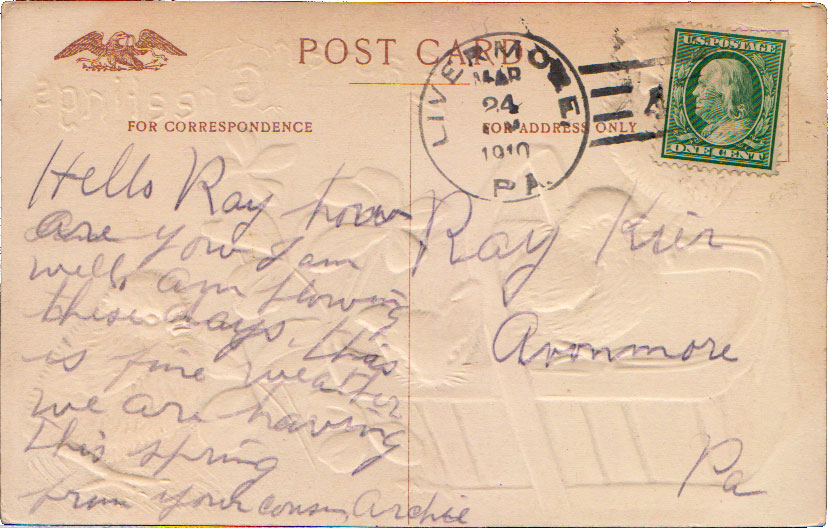 POST CARD
Greetings
FOR CORRESPONDENCE
FOR ADDRESS ONLY
LIVERMORE
MAR
24
M
1910
PA.
U.S. POSTAGE
ONE CENT
Hello Ray how
are you I am
well, am plowing
these days, this
is fine weather
we are having
this spring
from your cousin, Archie
Ray Kier
Avonmore
Pa